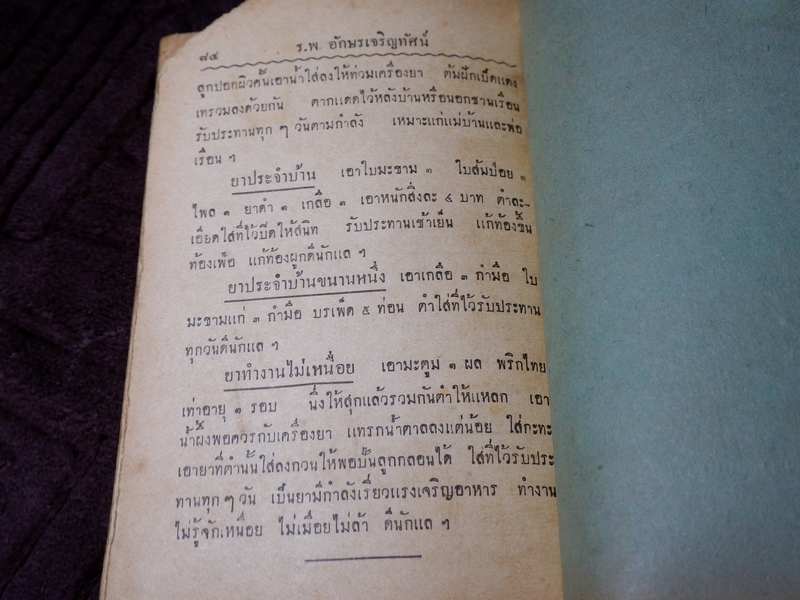 ๗๔ ร.พ. อักษรเจริญทัศน์
ลูกปอกผิวคั้นเอาน้ำใส่ลงให้ท่วมเครื่องยา ต้มฝักเบ็ดแดง
เทรวมลงด้วยกัน ตากแดดไว้หลังบ้านหรือนอกชานเรือน
รับประทานทุก ๆ วันตามกำลัง เหมาะแก่แม่บ้านและพ่อ
เรือน ฯ
ยาประจำบ้าน เอาใบมะขาม ๑ ใบส้มป่อย ๑
ไพล ๑ ยาดำ ๑ เกลือ ๑ เอาหนักสิ่งละ ๔ บาท ตำละ-
เอียดใส่ที่ไว้ปิดให้สนิท รับประทานเช้าเย็น แก้ท้องขึ้น
ท้องเฟ้อ แก้ท้องผูกดีนักแล ฯ
ยาประจำบ้านขนานหนึ่ง เอาเกลือ ๓ กำมือ ใบ
มะขามแก่ ๓ กำมือ บรเพ็ด ๕ ท่อน ตำใส่ที่ไว้รับประทาน
ทุกวันดีนักแล ฯ
ยาทำงานไม่เหนื่อย เอามะตูม ๑ ผล พริกไทย
เท่าอายุ ๑ รอบ นึ่งให้สุกแล้วรวมกันตำให้แหลก เอา
น้ำผึ้งพอควรกับเครื่องยา แทรกน้ำตาลลงแต่น้อย ใส่กะทะ
เอายาที่ตำนั้นใส่ลงกวนให้พอปั้นลูกกลอนได้ ใส่ที่ไว้รับประ
ทานทุก ๆ วัน เป็นยามีกำลังเรี่ยวแรงเจริญอาหาร ทำงาน
ไม่รู้จักเหนื่อย ไม่เมื่อยไม่ล้า ดีนักแล ฯ